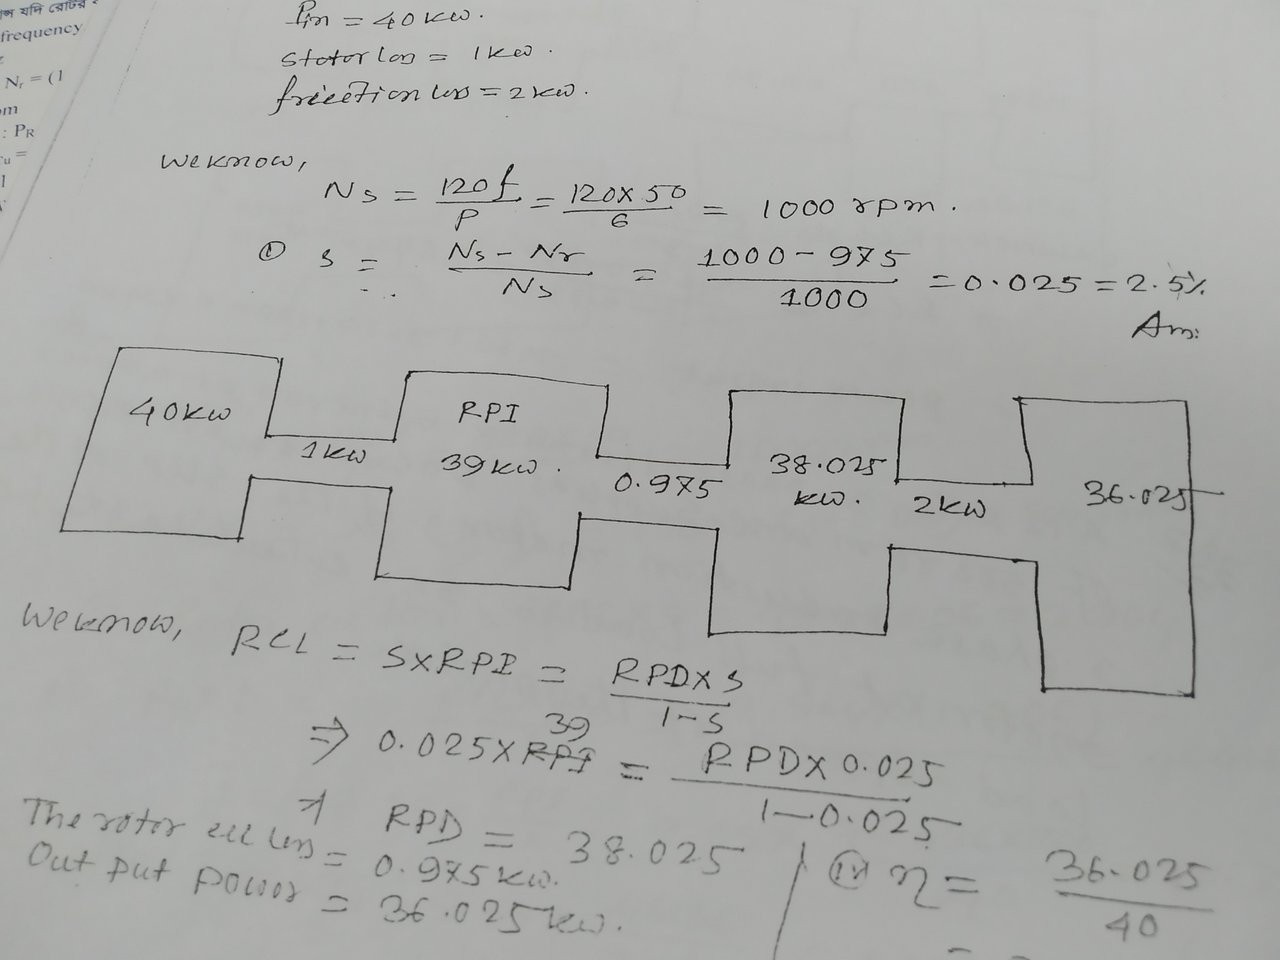 যদি রোটর
frequency
Nr = (1
: PR
Pin = 40kw.
stator loss = 1kw.
friection loss = 2kw.
We know,
Ns = 120f/P = 120×50/6 = 1000 rpm.
① s = Ns - Nr/Ns = 1000 - 975/1000 = 0.025 = 2.5%
Ans:
40kw
1kw
RPI
39kw.
0.975
38.025
kw.
2kw
36.025
We know, RCL = S×RPI = RPD×s/1-s
⇒ 0.025×RPI 39 = RPD×0.025/1-0.025
RPD = 38.025
The rotor cu loss = 0.975kw.
Out put power = 36.025kw.
η = 36.025/40
=